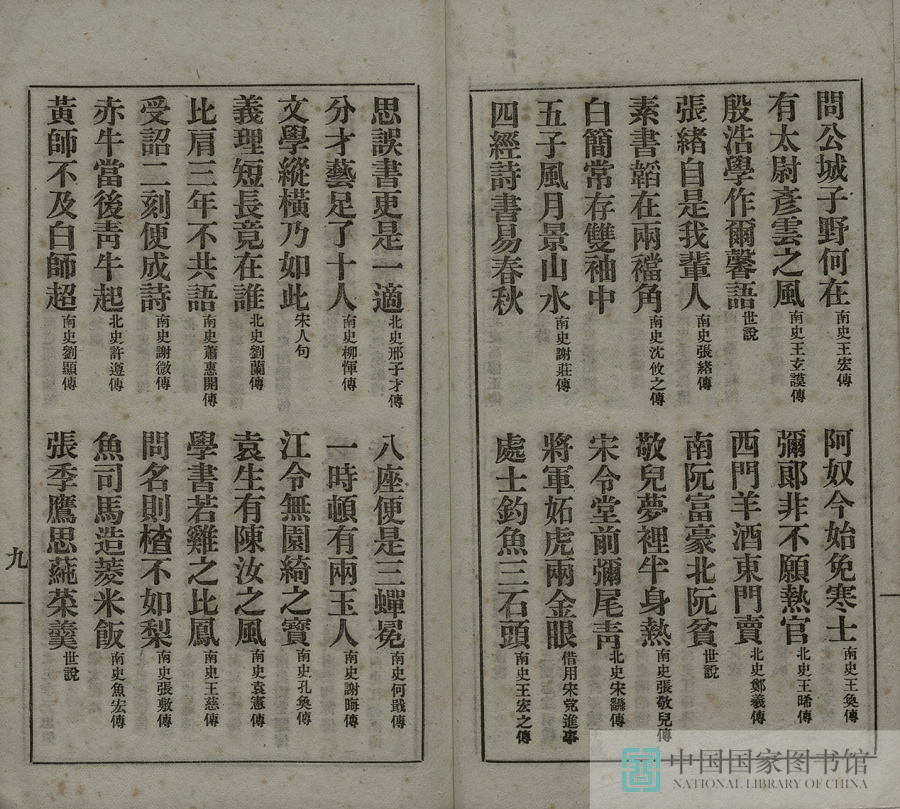 問公城子野何在南史王宏傳
阿奴今始免寒士南史王奐傳
有太尉彥雲之風南史王玄謨傳
彌郞非不願熱官北史王晞傳
殷浩學作爾馨語世說
西門羊酒東門賣北史鄭羲傳
張緒自是我輩人南史張緒傳
南阮富豪北阮貧世說
素書韜在兩襠角南史沈攸之傳
敬兒夢裡半身熱南史張敬兒傳
白簡常存雙袖中
宋令堂前彌尾靑北史宋傳
五子風月景山水南史謝莊傳
將軍妬虎兩金眼借用宋党進事
四經詩書易春秋
處士釣魚三石頭南史王宏之傳
思誤書吏是一適北史邢子才傳
八座便是三蟬冕南史何戢傳
分才藝足了十人南史柳惲傳
一時頓有兩玉人南史謝晦傳
文學縱橫乃如此宋人句
江令無園綺之寶南史孔奐傳
義理短長竟在誰北史劉蘭傳
袁生有陳汝之風南史袁憲傳
比肩三年不共語南史蕭惠開傳
學書若雞之比鳳南史王慈傳
受詔二刻便成詩南史謝微傳
問名則楂不如梨南史張敷傳
赤牛當後靑牛起北史許遵傳
魚司馬造菱米飯南史魚宏傳
黃師不及白師超南史劉顯傳
張季鷹思蒓菜羹世說
九
中国国家图书馆
NATIONAL LIBRARY OF CHINA